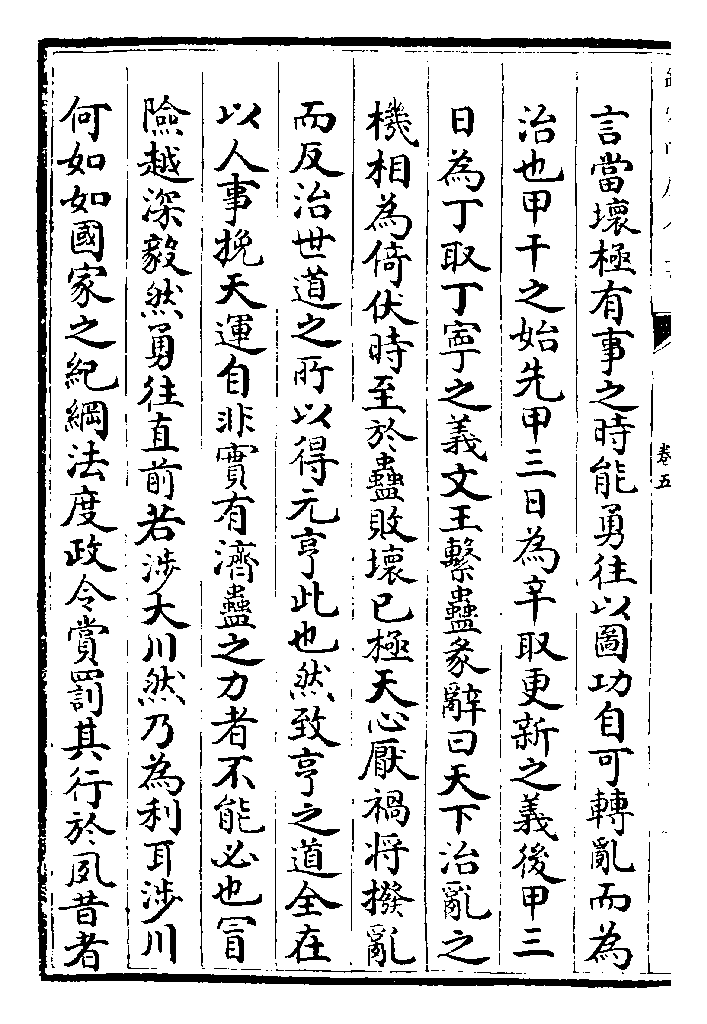 卷五
言當壞極有事之時能勇往以圖功自可轉亂而為
治也甲干之始先甲三日為辛取更新之義後甲三
日為丁取丁寧之義文王繫蠱彖辭曰天下治亂之
機相為倚伏時至於蠱敗壞已極天心厭禍将撥亂
而反治世道之所以得元亨此也然致亨之道全在
以人事挽天運自非實有濟蠱之力者不能必也冒
險越深毅然勇往直前若涉大川然乃為利耳涉川
何如如國家之紀綱法度政令賞罰其行於夙昔者